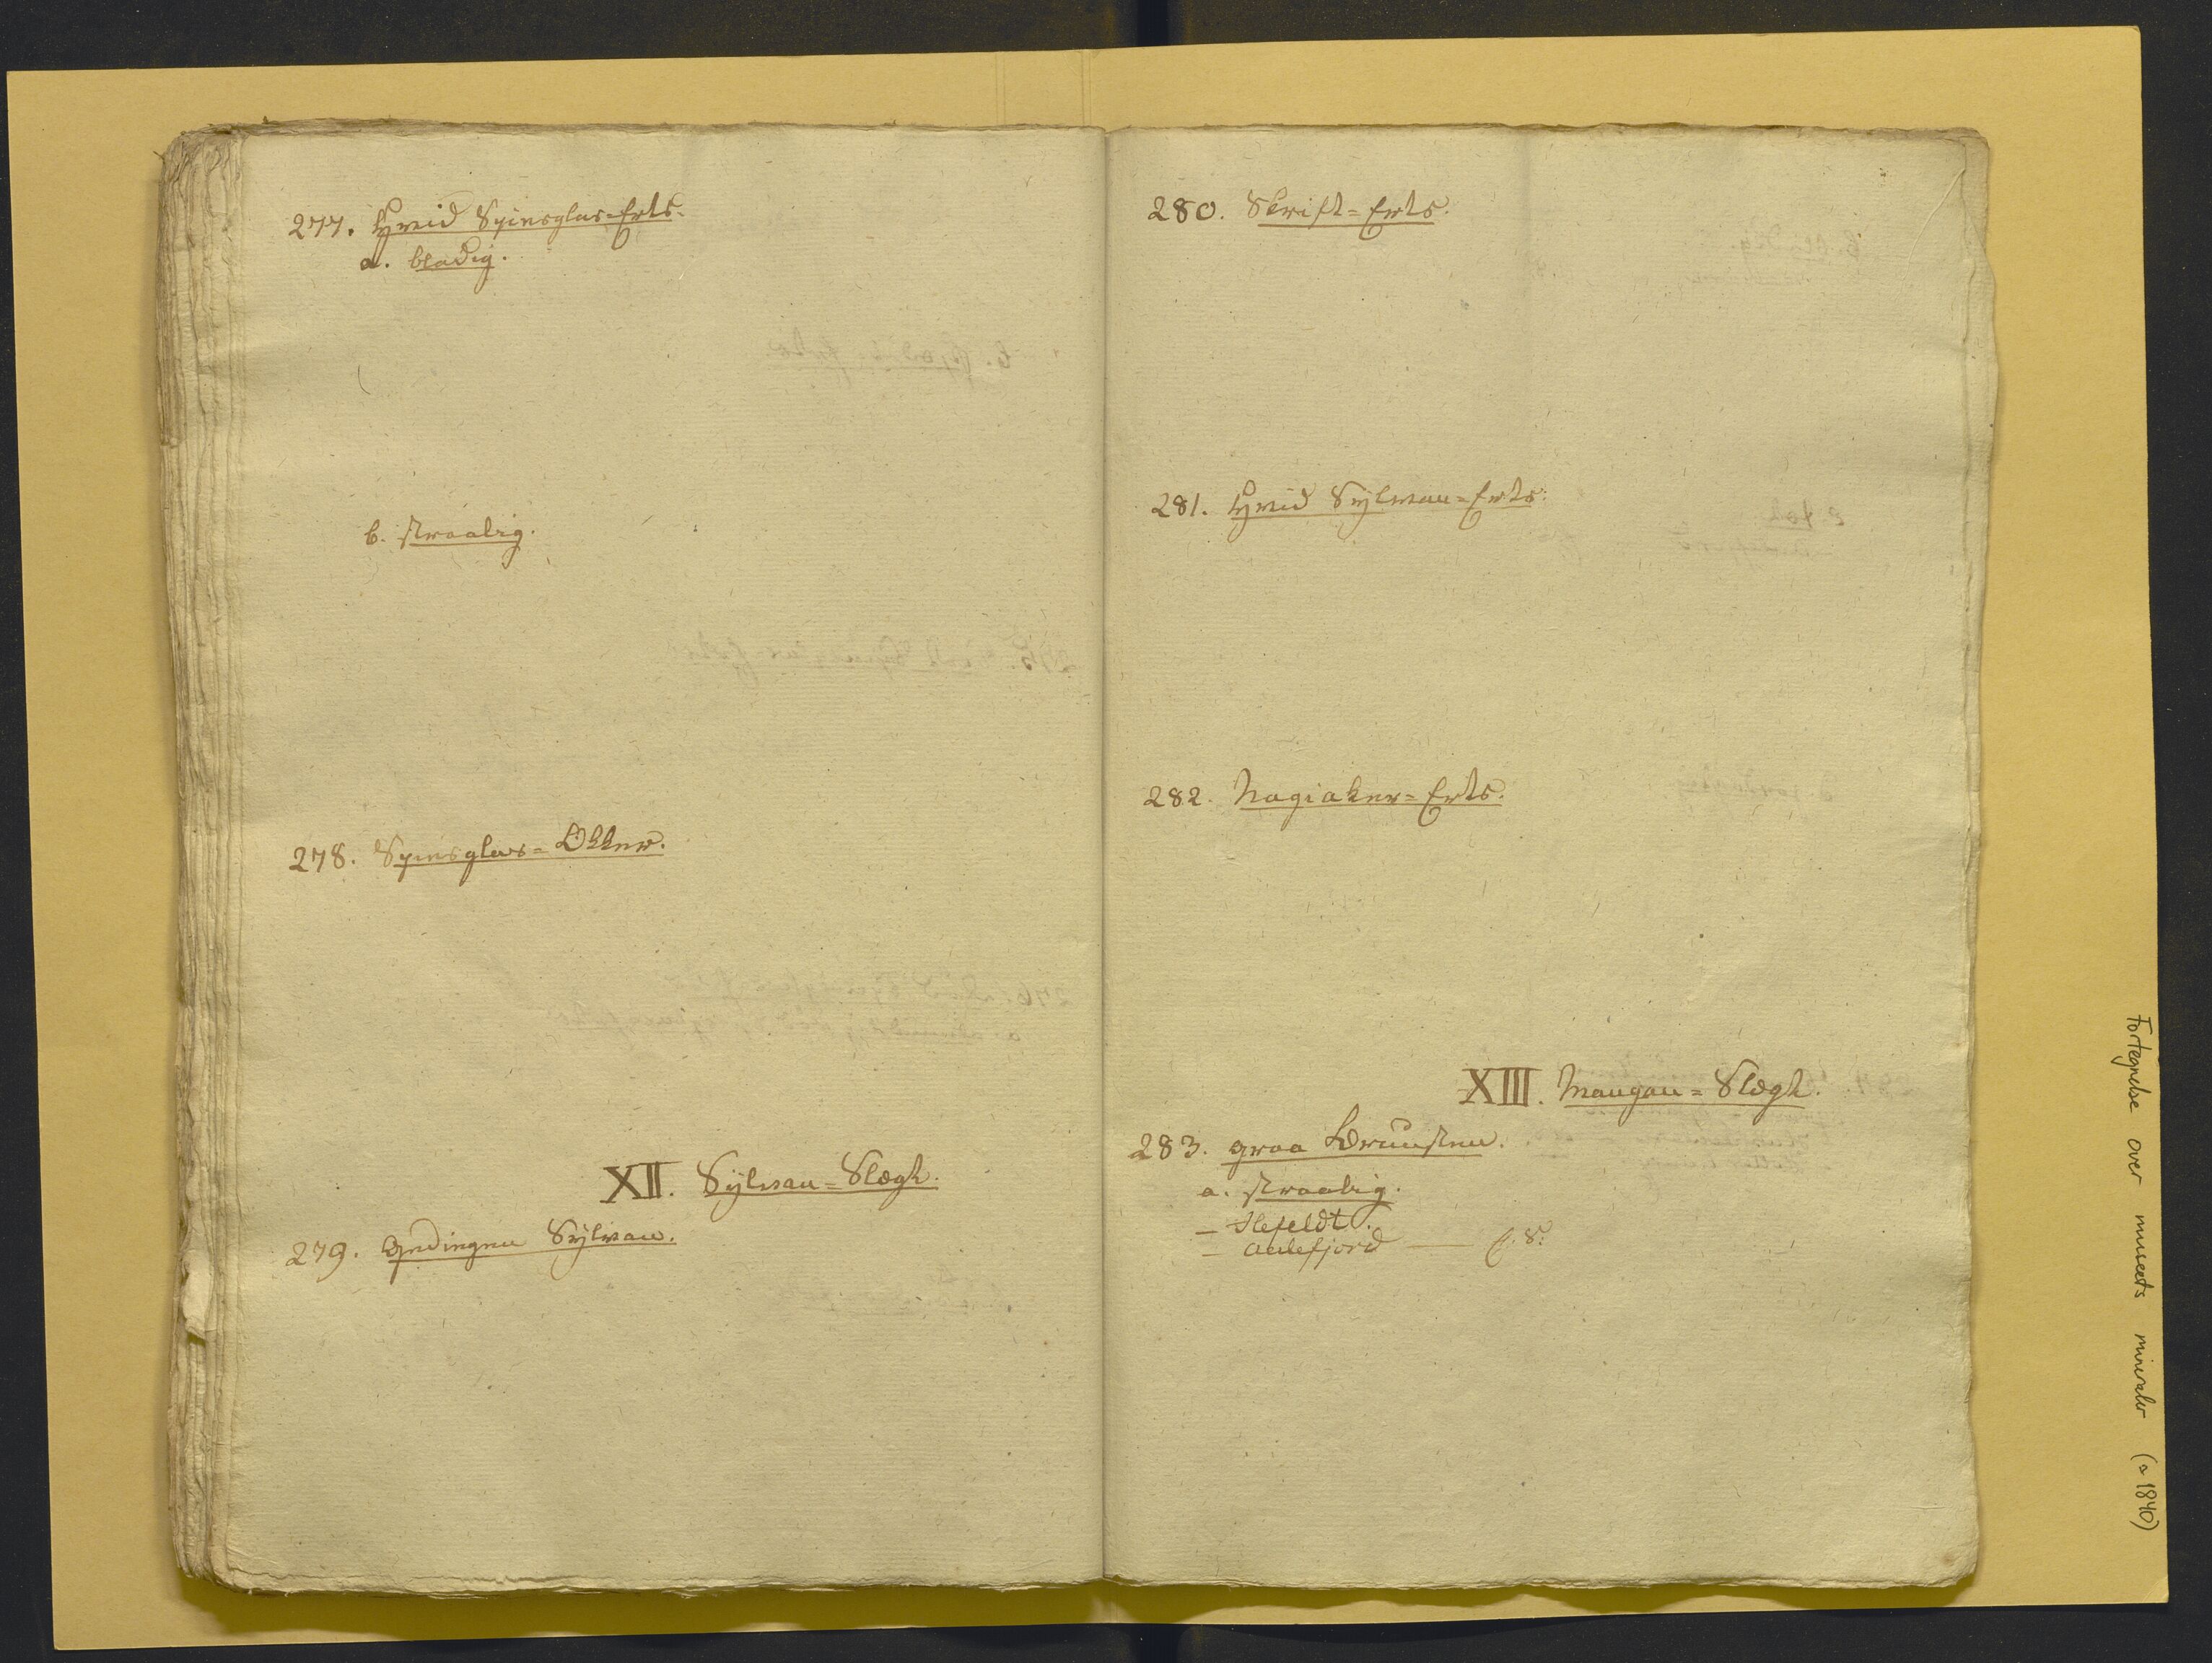 277. Hvid Spiesglas=Erts.
a. bladig.
b. straalig.
278. Spiesglas=Okker.
XII. Sylvan=Slægt.
279. Gediegen Sylvan.
280. Skrift=Erts.
281. Hvid Sylvan=Erts.
282. Nagiaker=Erts.
XIII. Mangan=Slægt.
283. graa Brunsten.
a. straalig.
— Ilefeldt.
— Aalefjord — S.
Fortegnelse over museets mineraler (ca 1840)